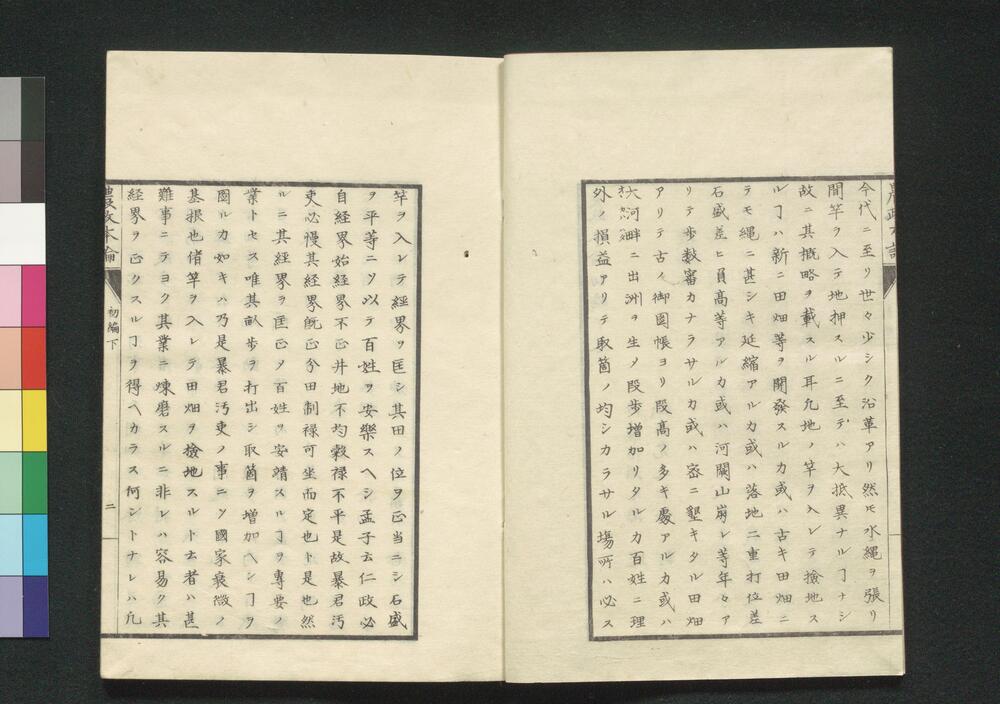 今代ニ至リ世々少シク沿革アリ然𪜈水縄ヲ張リ
間竿ヲ入テ地押スルニ至テハ大抵異ナルヿナシ
故ニ其概略ヲ載スル耳凡地ノ竿ヲ入レテ撿地ス
ルヿハ新ニ田畑等ヲ開發スルカ或ハ古キ田畑ニ
テモ縄ニ甚シキ延縮アルカ或ハ落地二重打位差
石盛差ヒ員高等アルカ或ハ河闕山崩レ等年々ア
リテ歩数審カナラサルカ或ハ宻ニ墾キタル田畑
アリテ古ノ御圖帳ヨリ段高ノ多キ處アルカ或ハ
大河畔ニ出洲ヲ生ノ段歩増加リタルカ百姓ニ理
外ノ損益アリテ取箇ノ均シカラサル場所ハ必ス
竿ヲ入レテ經界ヲ匡シ其田ノ位ヲ正当ニシ石盛
ヲ平等ニソ以テ百姓ヲ安樂スヘシ孟子云仁政必
自経界始経界不正井地不均穀禄不平是故暴君汚
吏必慢其経界既正分田制禄可坐而定也ト是也然
ルニ其経界ヲ匡正ソ百姓ヲ安靖スルヿヲ専要ノ
業トセス唯其畝歩ヲ打出シ取箇ヲ増加ヘシヿヲ
圖ルカ如キハ乃是暴君汚吏ノ事ニソ國家衰微ノ
基根也偖竿ヲ入レテ田畑ヲ撿地スルト云者ハ甚
難事ニテヨク其業ニ煉磨スルニ非レハ容易ク其
経界ヲ正クスルヿヲ得ヘカラス何ントナレハ凡
農政本論 初編下 二